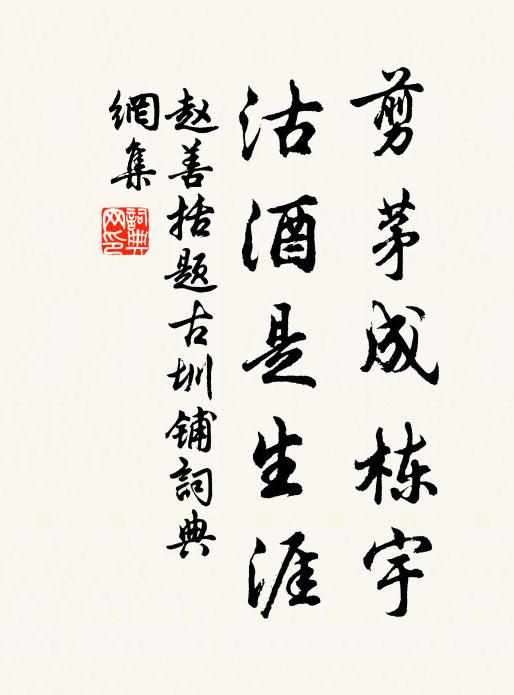 剪茅成栋宇
沽酒是生涯
赵善括题古圳铺詞典
網集
詞典
网印